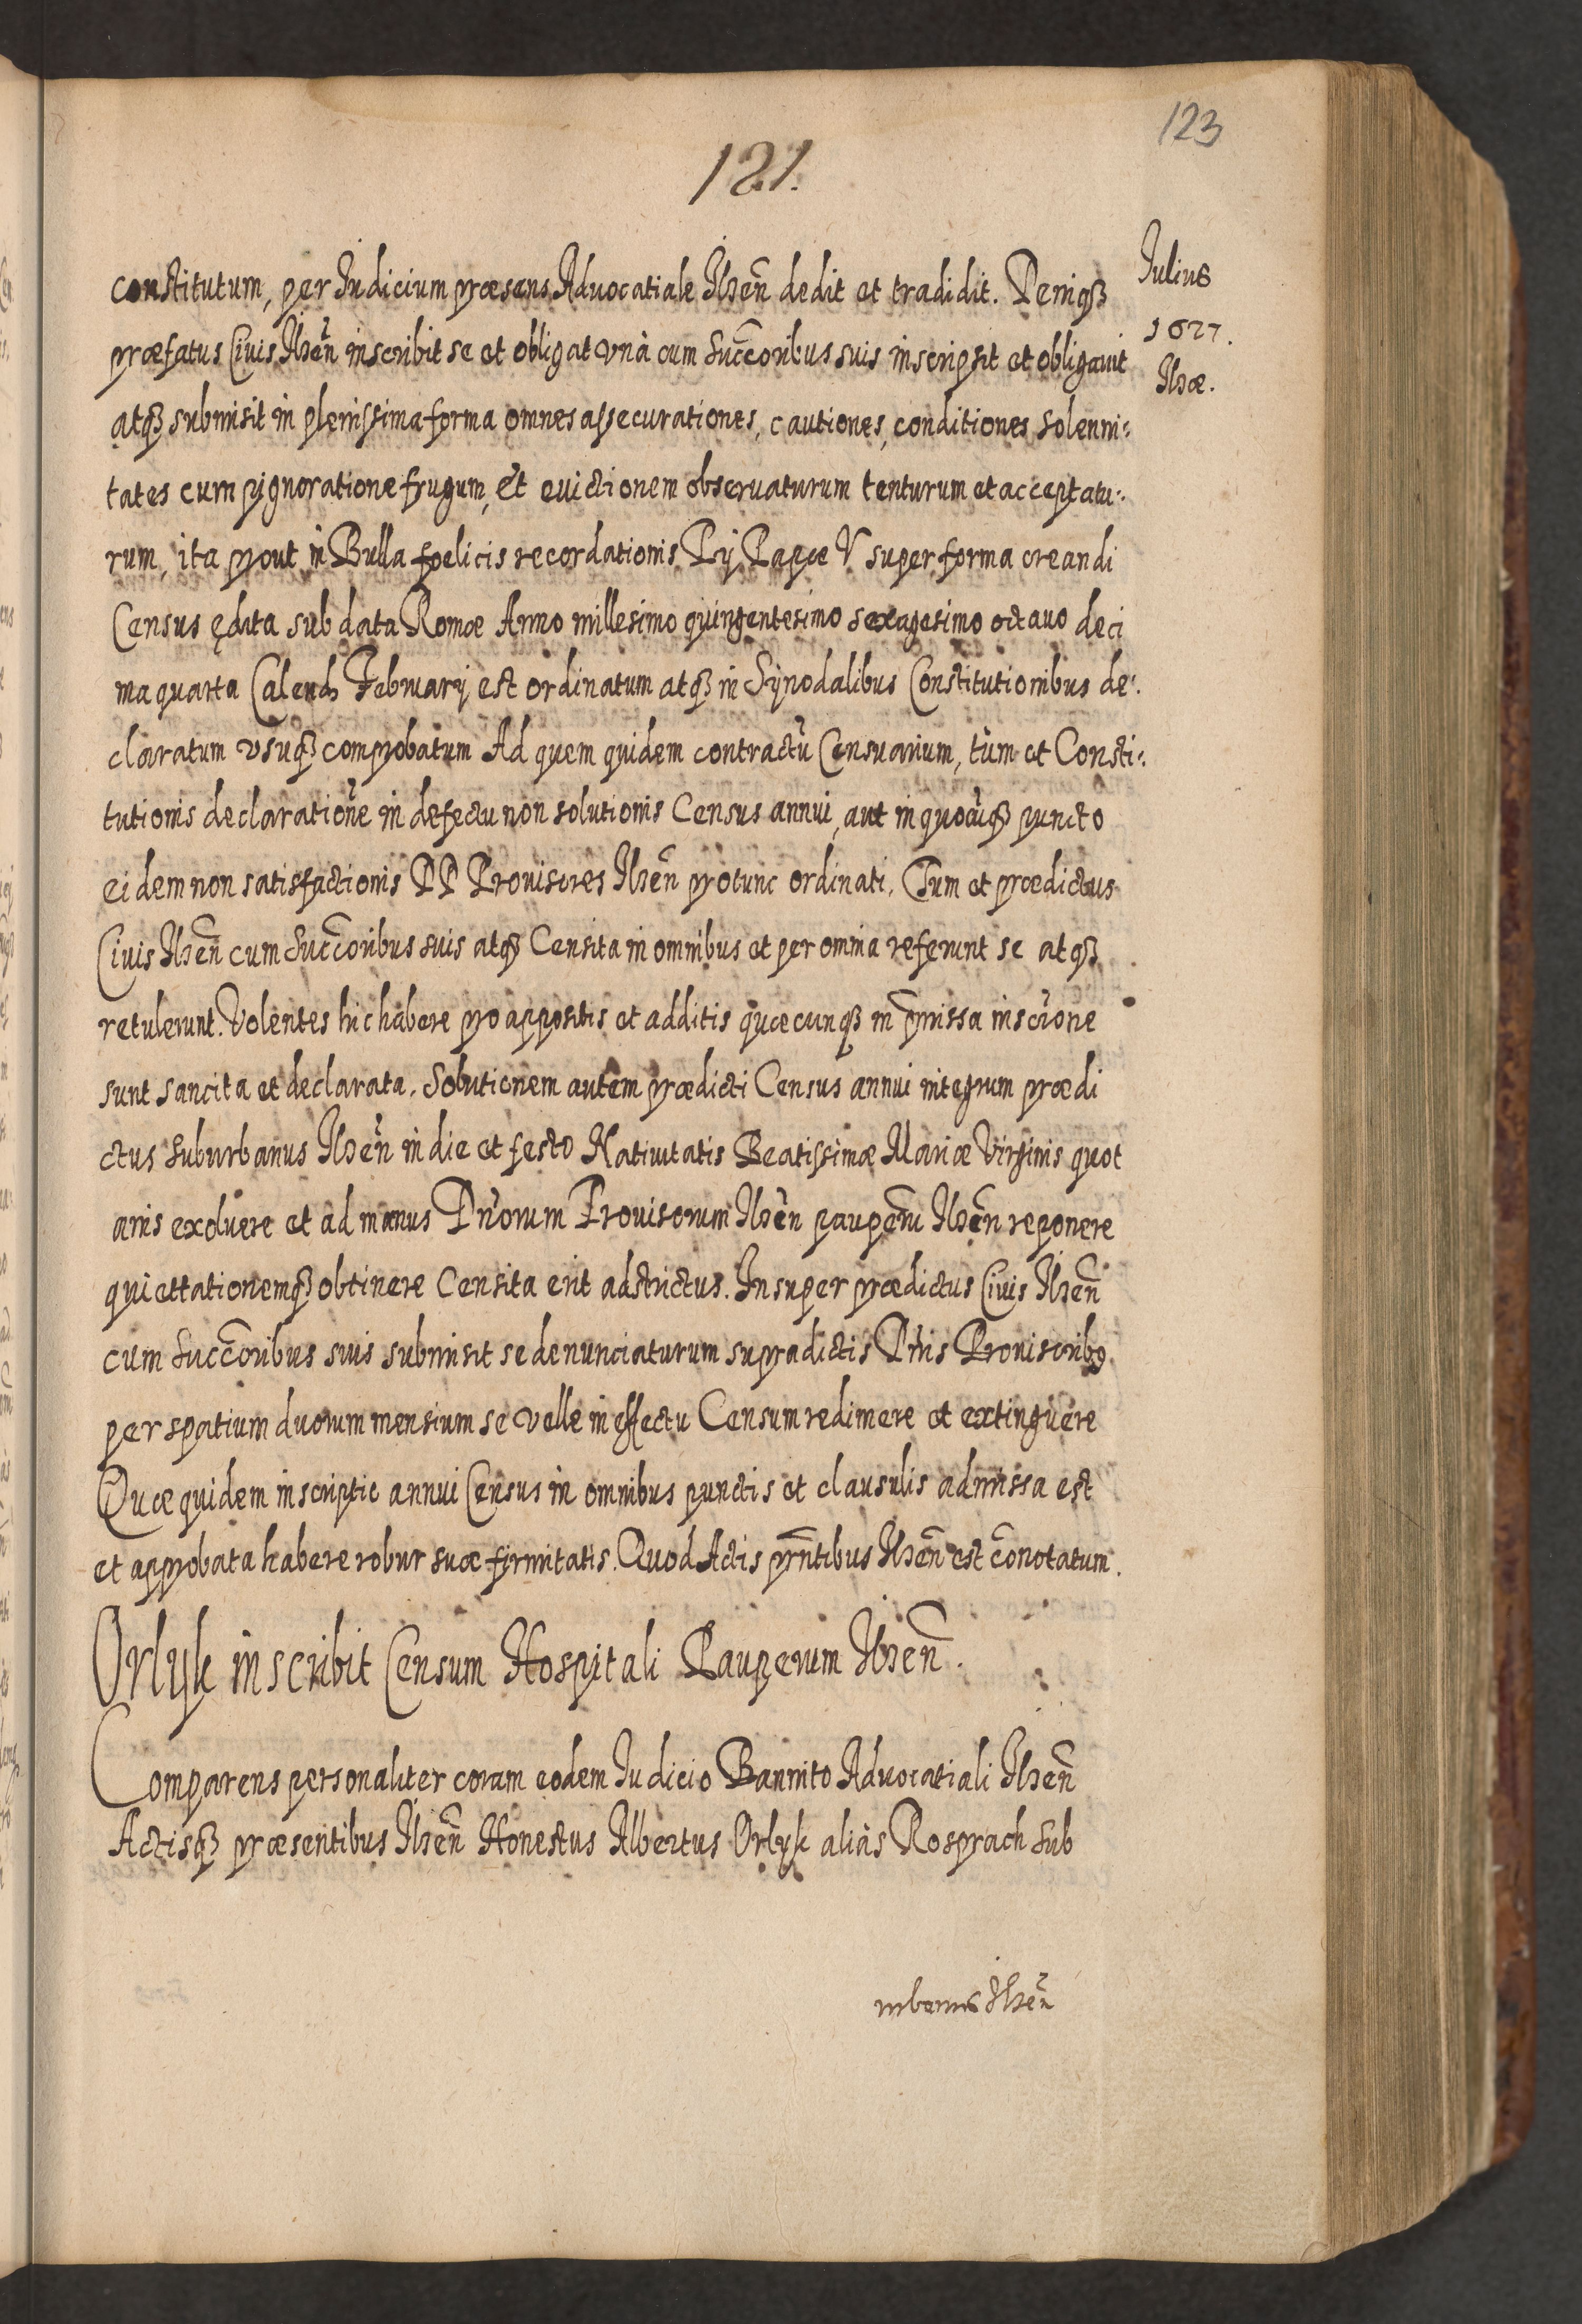 123
121.
Julius
1627.
Ilzæ.
constitutum, per Iudicium præsens Aduocatiale Ilzen̄ dedit et tradidit. Deniqȝ
præfatus Ciuis Ilzen̄ inscribit se et obligat vnà cum Succ̄oribus suis inscripsit et obligauit
atqȝ submisit in plenissima forma omnes assecurationes, cautiones, conditiones Solenni:
tates cum pignoratione frugum, Et euictionem obseruaturum tenturum et acceptatu:
rum, ita prout in Bulla foelicis recordationis Pij Papæ V super forma creandi
Census ędita sub data Romæ Anno millesimo quingentesimo sexagesimo octauo deci
ma quarta Calend Februarij est ordinatum atqȝ in Synodalibus Constitutionibus de:
claratum vsuqȝ comprobatum Ad quem quidem contractū Censuarium, tùm et Consti:
tutionis declaratione in defectu non solutionis Census annui, aut in quocūqȝ puncto
eidem non satisfactionis PP Prouisores Ilzen̄ protunc ordinati. Tum et prædictus
Ciuis Ilzen̄ cum Succ̄oribus suis atqȝ Censita in omnibus et per omnia referunt se atqȝ
retulerunt. Volentes hic habere pro appositis et additis quæcunqȝ in p̄missa inscr̄one
sunt sancita et declarata. Solutionem autem prædicti Census annui integrum prædi
ctus Suburbanus Ilzen̄ in die et festo Natiuitatis Beatissimæ Mariæ Virginis quot
anis exoluere et ad manus Dn̄orum Prouisorum Ilzen̄ pauperu̅ Ilzen̄ reponere
quiettationemqȝ obtinere Censita erit adstrictus. Insuper prædictus Ciuis Ilzen̄
cum Succ̄oribus suis submisit se denunciaturum supradictis Dn̄is Prouisoribꝰ
per spatium duorum mensium se velle in effectu Censum redimere et extinguere
Quæ quidem inscriptio annui Census in omnibus punctis et clausulis admissa est
et approbata habere robur suæ firmitatis. Quod Actis pr̄ntibus Ilzen̄ est c̄onotatum.
Orlyk inscribit Censum Hospitali Pauperum Ilzen̄.
Comparens personaliter coram eodem Iudicio Bannito Aduocatiali Ilzen̄
Actisqȝ præsentibus Ilzen̄ Honestus Albertus Orlyk aliàs Rosprach Sub
urbanus Ilzen̄